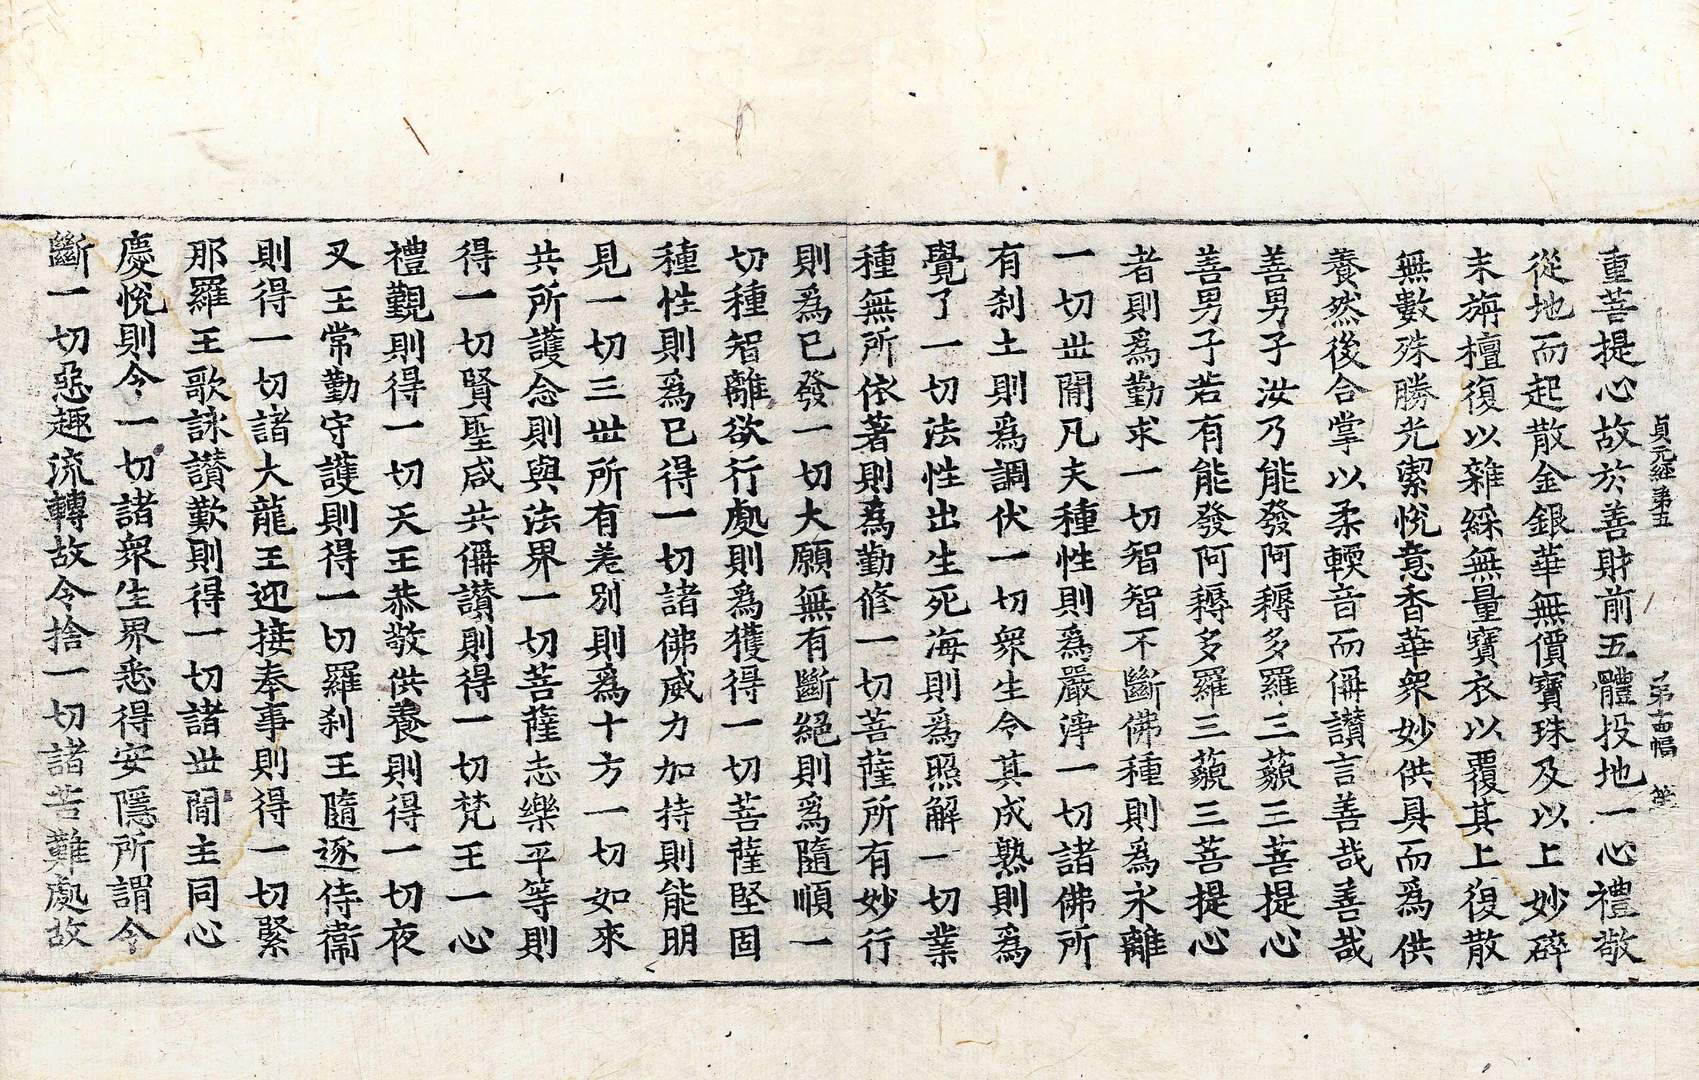 貞元經第五 第十四幅
重菩提心故於善財前五體投地一心禮敬
從地而起散金銀華無價寶珠及以上妙碎
末旃檀復以雜綵無量寶衣以覆其上復散
無數殊勝光潔悅意香華衆妙供具而爲供
養然後合掌以柔輭音而偁讃言善哉善哉
善男子汝乃能發阿耨多羅三藐三菩提心
善男子若有能發阿耨多羅三藐三菩提心
者則爲勤求一切智智不斷佛種則爲永離
一切世間凡夫種性則爲嚴淨一切諸佛所
有刹土則爲調伏一切衆生令其成熟則爲
覺了一切法性出生死海則爲照解一切業
種無所依著則爲勤修一切菩薩所有妙行
則爲已發一切大願無有斷絕則爲隨順一
切種智離欲行處則爲獲得一切菩薩堅固
種性則爲已得一切諸佛威力加持則能明
見一切三世所有差別則爲十方一切如來
共所護念則與法界一切菩薩志樂平等則
得一切賢聖咸共偁讃則得一切梵王一心
禮覲則得一切天王恭敬供養則得一切夜
叉王常勤守護則得一切羅刹王隨逐侍衞
則得一切諸大龍王迎接奉事則得一切緊
那羅王歌詠讃歎則得一切諸世間主同心
慶悅則令一切諸衆生界悉得安隱所謂令
斷一切惡趣流轉故令捨一切諸苦難處故